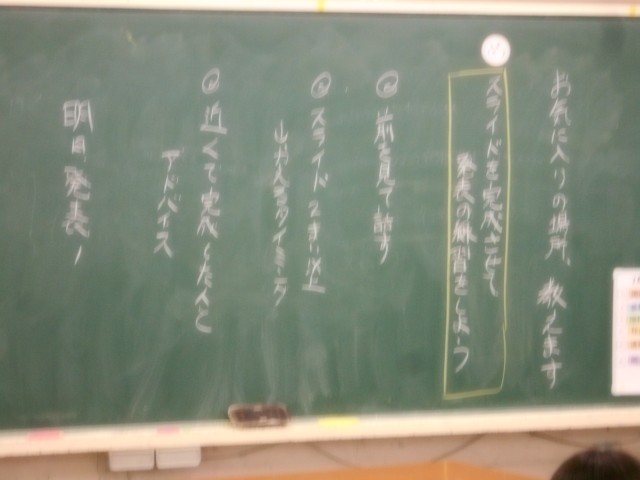 お気に入りの場所、教えます
め
スライドを完成させて
発表の練習をしよう
前を見て話す
スライド2き以上
出入るタイミング
近くで完成した人と
アドバイス
明日、発表!